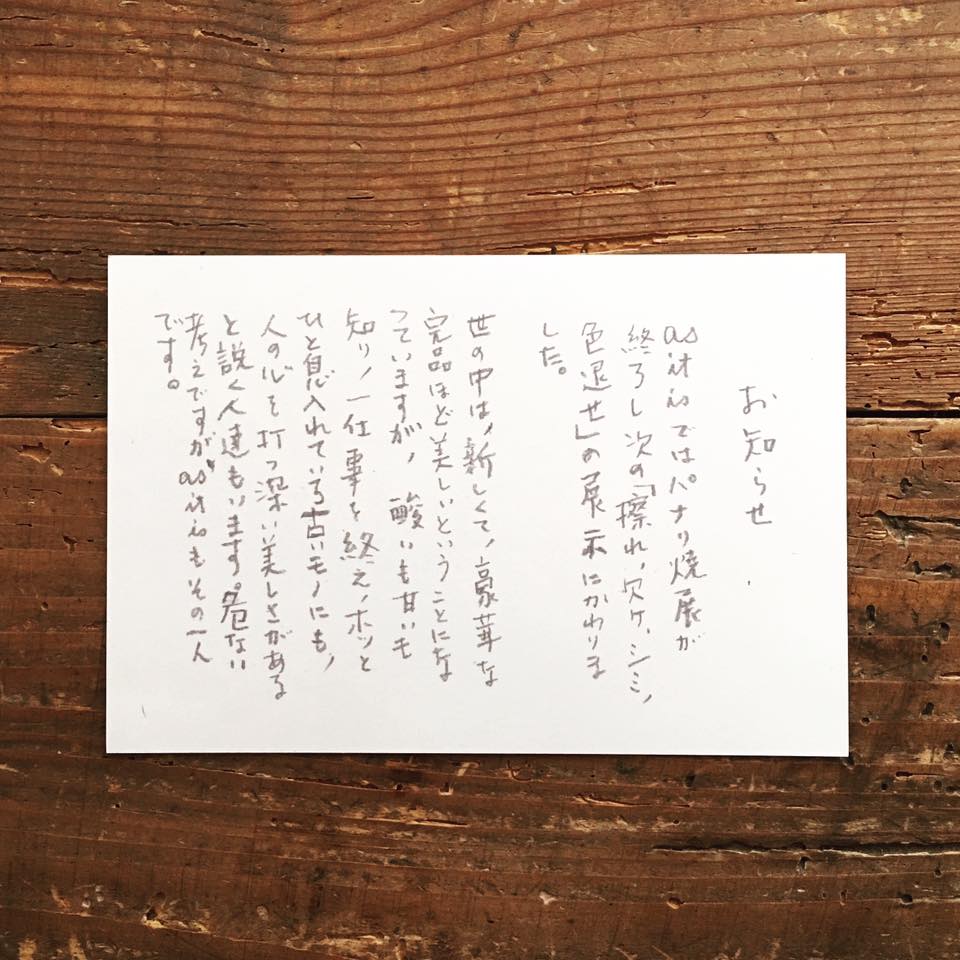 お知らせ
as it isではパナリ焼展が
終了し次の「擦れ、欠ケ、シミ、
色退せ」の展示にかわりま
した。
世の中は、新しくて、豪華な
完品ほど美しいということにな
っていますが、酸いも甘いも
知り、一仕事を終え、ホッと
ひと息入れている古いモノにも、
人の心を打つ深い美しさがある
と説く人達もいます。危ない
考えですが as it isもその一人
です。